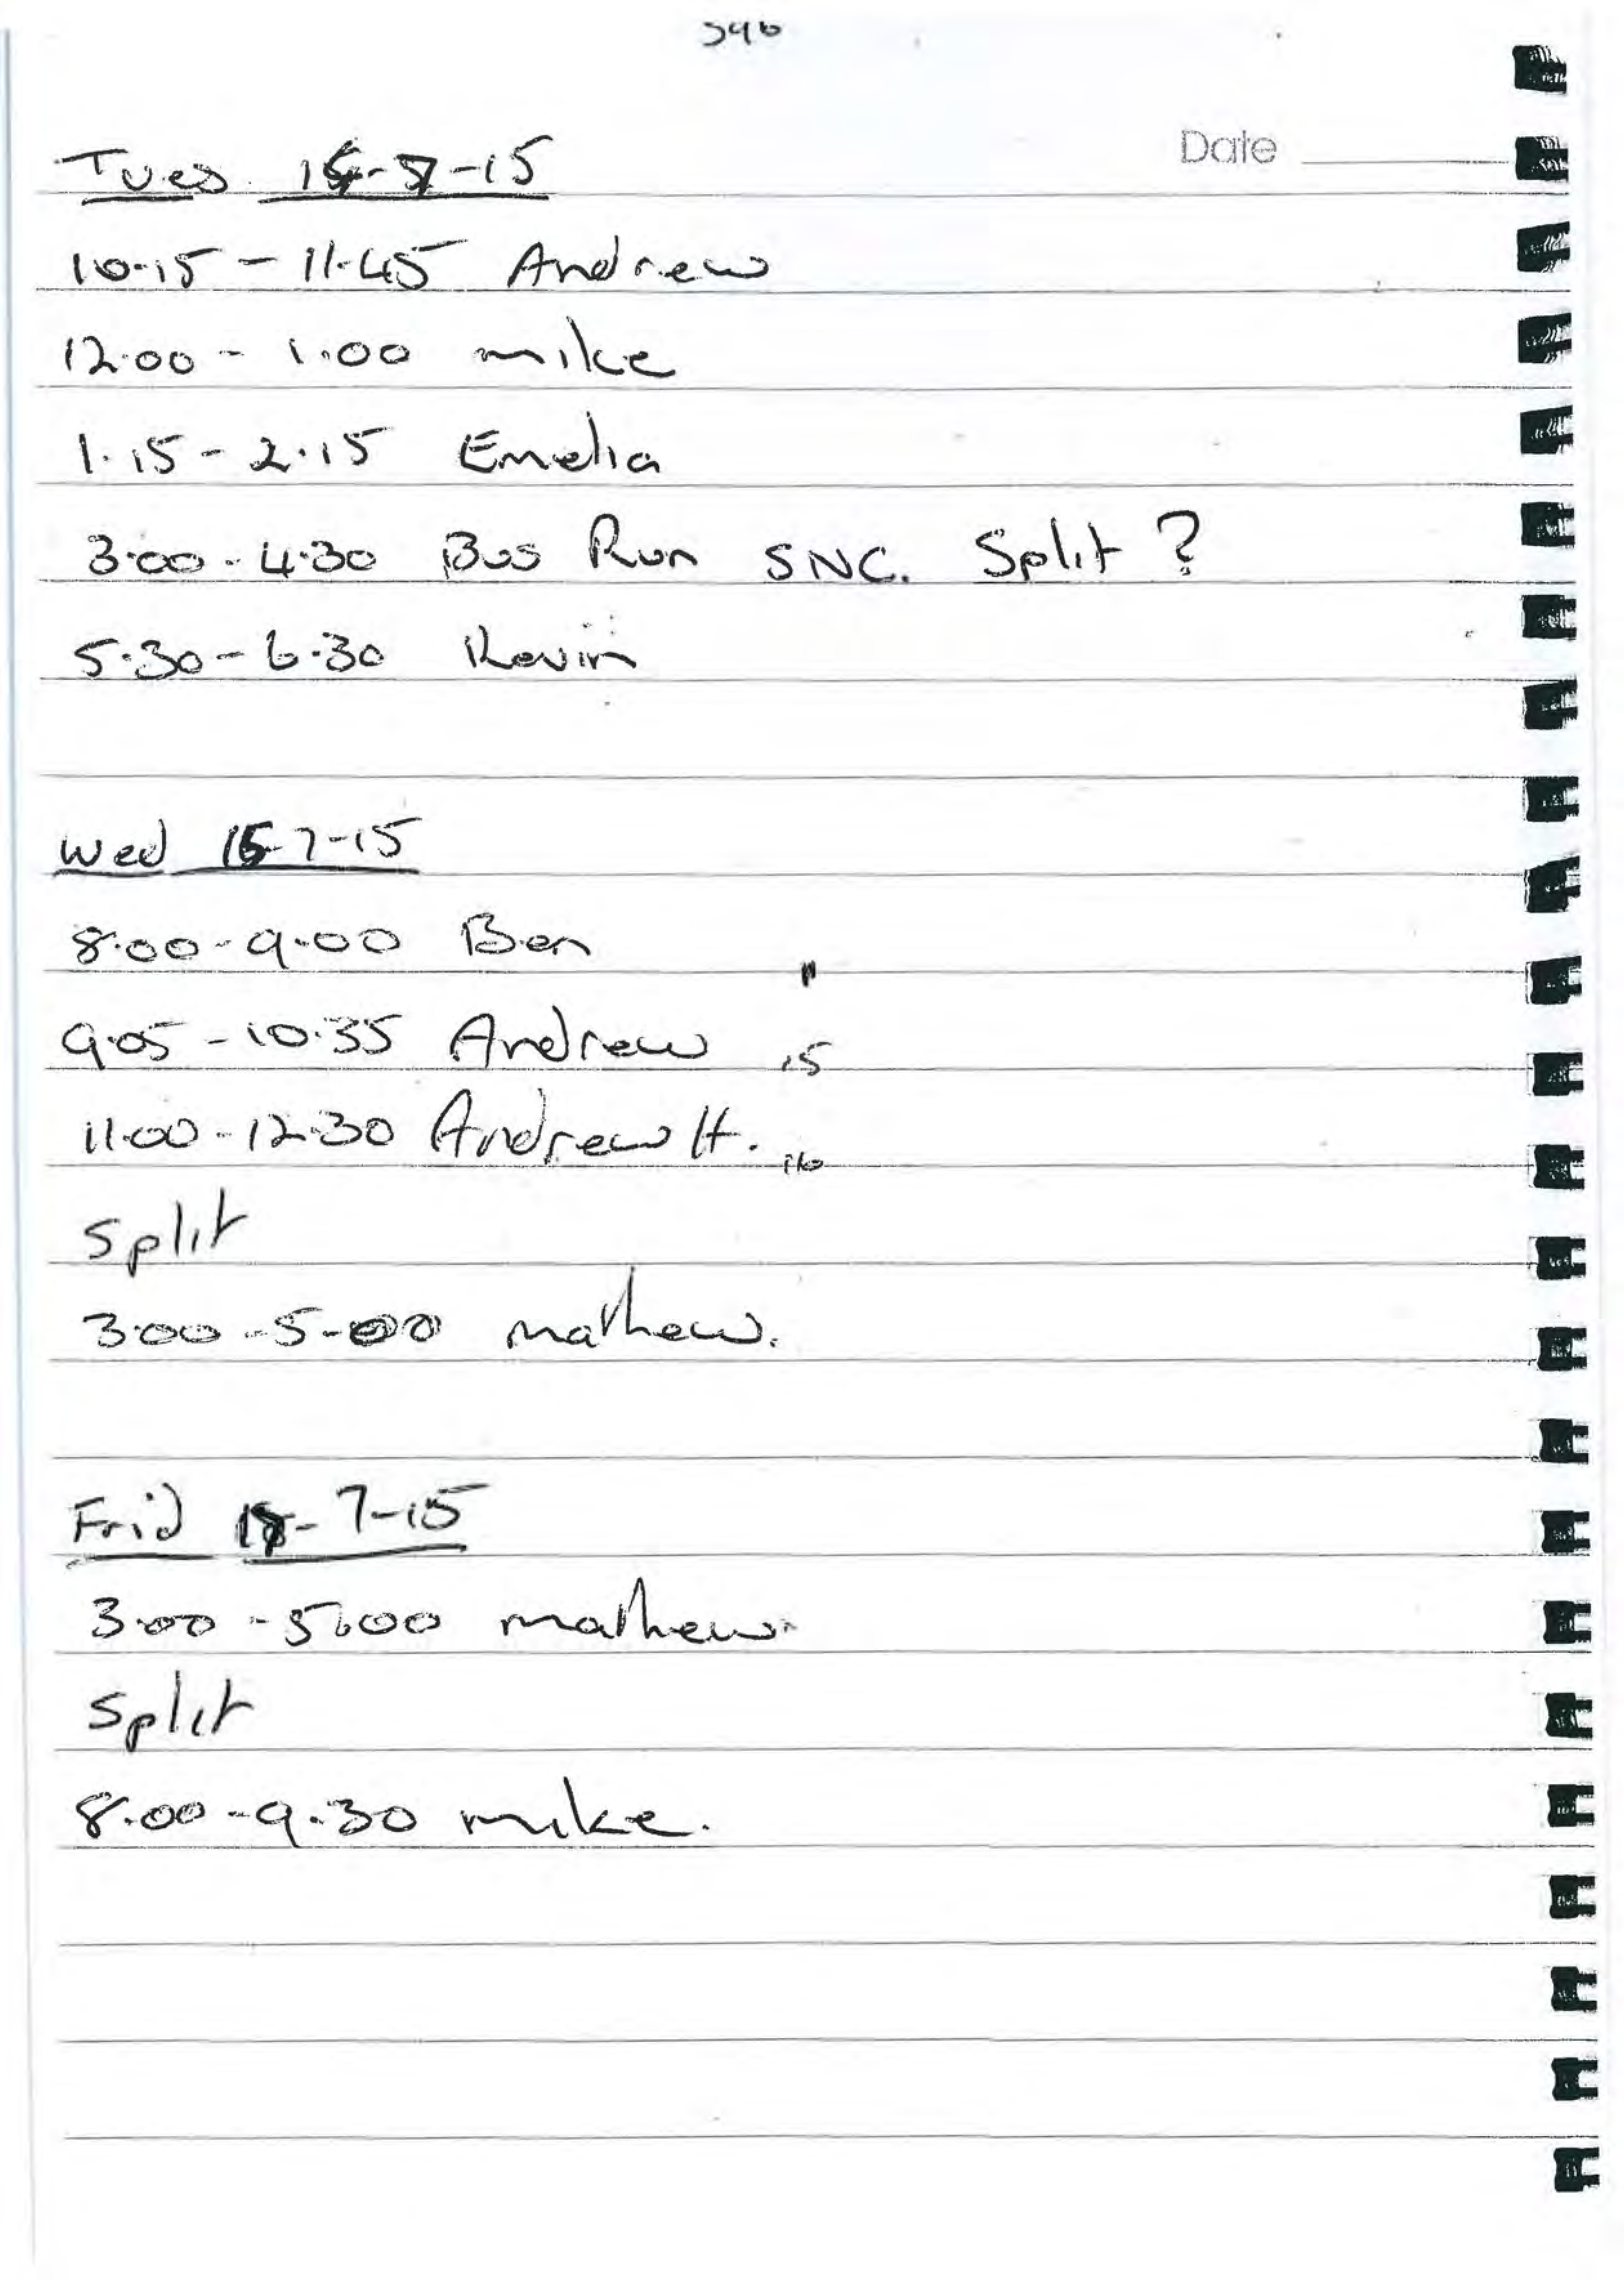 Date
Tues -15
10.15 - 11.45 Andrew
12.00 - 1.00 mike
1.15 - 2.15 Emelia
3.00 - 4.30 Bus Run SNC. Split ?
5.30 - 6.30 Kevin
Wed 15-7-15
8.00 - 9.00 Ben
9.05 - 10.35 Andrew 15
11.00 - 12.30 Andrew H. 16
Split
3.00 - 5.00 mathew.
Frid 7-15
3.00 - 5.00 mathew.
Split
8.00 - 9.30 mike.